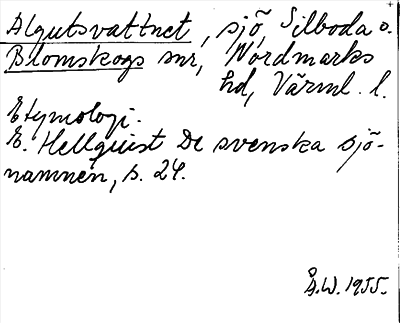 Algutsvattnet, sjö, Silboda o.
Blomskogs snr, Nordmarks
hd, Värml. l.
Etymologi.
E. Hellquist De svenska sjö-
namnen, s. 24.
Å.W. 1955.